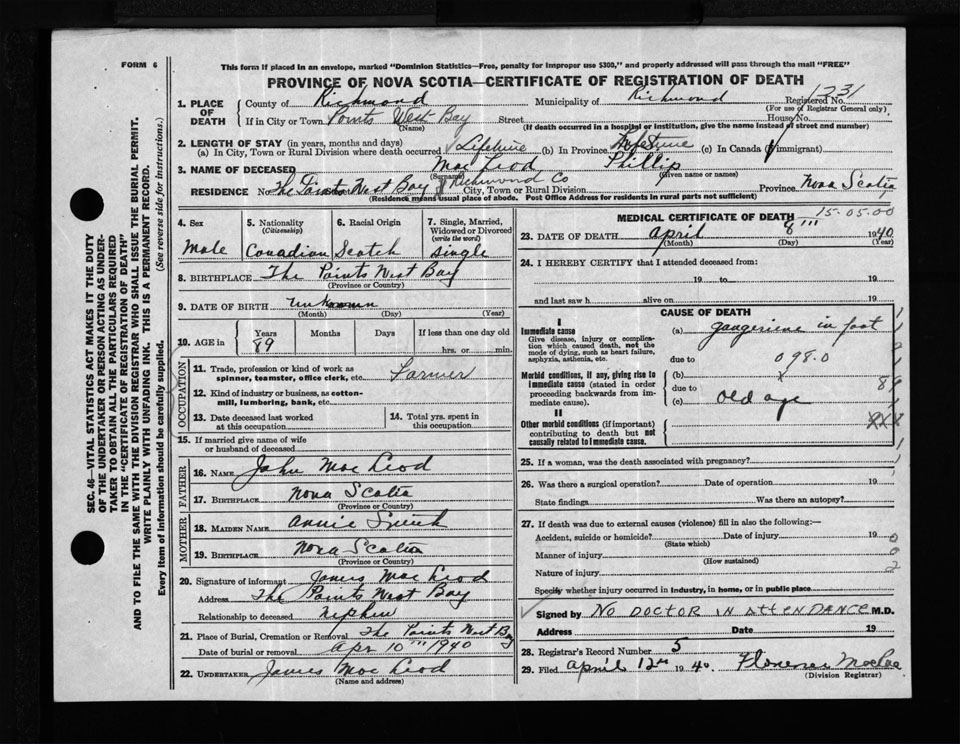 FORM 6
This form if placed in an envelope, marked "Dominion Statistics—Free, penalty for improper use $300," and properly addressed will pass through the mail "FREE"
PROVINCE OF NOVA SCOTIA—CERTIFICATE OF REGISTRATION OF DEATH
1. PLACE OF DEATH { County of Richmond Municipality of Richmond Registered No. 1231
(For use of Registrar General only)
If in City or Town Points West Bay Street House No.
(Name) (If death occurred in a hospital or institution, give the name instead of street and number)
2. LENGTH OF STAY (in years, months and days)
(a) In City, Town or Rural Division where death occurred Lifetime (b) In Province Lifetime (c) In Canada (if immigrant)
3. NAME OF DECEASED Mac Leod Phillip
(Surname) (Given name or names)
RESIDENCE No. The Points West Bay Richmond Co City, Town or Rural Division Province Nova Scotia
(Residence means usual place of abode. Post Office Address for residents in rural parts not sufficient)
4. Sex
Male
5. Nationality
(Citizenship)
Canadian
6. Racial Origin
Scotch
7. Single, Married, Widowed or Divorced
(write the word)
single
8. BIRTHPLACE The Points West Bay
(Province or Country)
9. DATE OF BIRTH unknown
(Month) (Day) (Year)
10. AGE in Years Months Days If less than one day old
89 hrs. or min.
OCCUPATION
11. Trade, profession or kind of work as
spinner, teamster, office clerk, etc. Farmer
12. Kind of industry or business, as cotton-
mill, lumbering, bank, etc.
13. Date deceased last worked
at this occupation
14. Total yrs. spent in
this occupation
15. If married give name of wife
or husband of deceased
FATHER
16. NAME John Mac Leod
17. BIRTHPLACE Nova Scotia
(Province or Country)
MOTHER
18. MAIDEN NAME Annie
19. BIRTHPLACE Nova Scotia
(Province or Country)
20. Signature of informant James Mac Leod
Address The Points West Bay
Relationship to deceased nephew
21. Place of Burial, Cremation or Removal The Points West Bay
Date of burial or removal Apr 10th 1940
22. UNDERTAKER James Mac Leod
(Name and address)
MEDICAL CERTIFICATE OF DEATH 15-05-00
23. DATE OF DEATH April 8th 1940
(Month) (Day) (Year)
24. I HEREBY CERTIFY that I attended deceased from:
19 to 19
and last saw h alive on 19
CAUSE OF DEATH
I
Immediate cause
Give disease, injury or complica-
tion which caused death, not the
mode of dying, such as heart failure,
asphyxia, asthenia, etc.
(a) gangerine in foot
due to 098.0
Morbid conditions, if any, giving rise to
immediate cause (stated in order
proceeding backwards from im-
mediate cause).
(b)
due to 89
(c) old age
II
Other morbid conditions (if important)
contributing to death but not
causally related to immediate cause.
XXX
25. If a woman, was the death associated with pregnancy?
26. Was there a surgical operation? Date of operation 19
State findings Was there an autopsy?
27. If death was due to external causes (violence) fill in also the following:—
Accident, suicide or homicide? Date of injury 19
(State which)
Manner of injury
(How sustained)
Nature of injury
Specify whether injury occurred in industry, in home, or in public place
Signed by NO DOCTOR IN ATTENDANCE M.D.
Address Date 19
28. Registrar's Record Number 5
29. Filed April 12th 1940. Florence
(Division Registrar)
SEC. 46—VITAL STATISTICS ACT MAKES IT THE DUTY
OF THE UNDERTAKER OR PERSON ACTING AS UNDER-
TAKER TO OBTAIN ALL THE PARTICULARS REQUIRED
IN THE "CERTIFICATE OF REGISTRATION OF DEATH"
AND TO FILE THE SAME WITH THE DIVISION REGISTRAR WHO SHALL ISSUE THE BURIAL PERMIT.
WRITE PLAINLY WITH UNFADING INK. THIS IS A PERMANENT RECORD.
Every item of information should be carefully supplied. (See reverse side for instructions.)